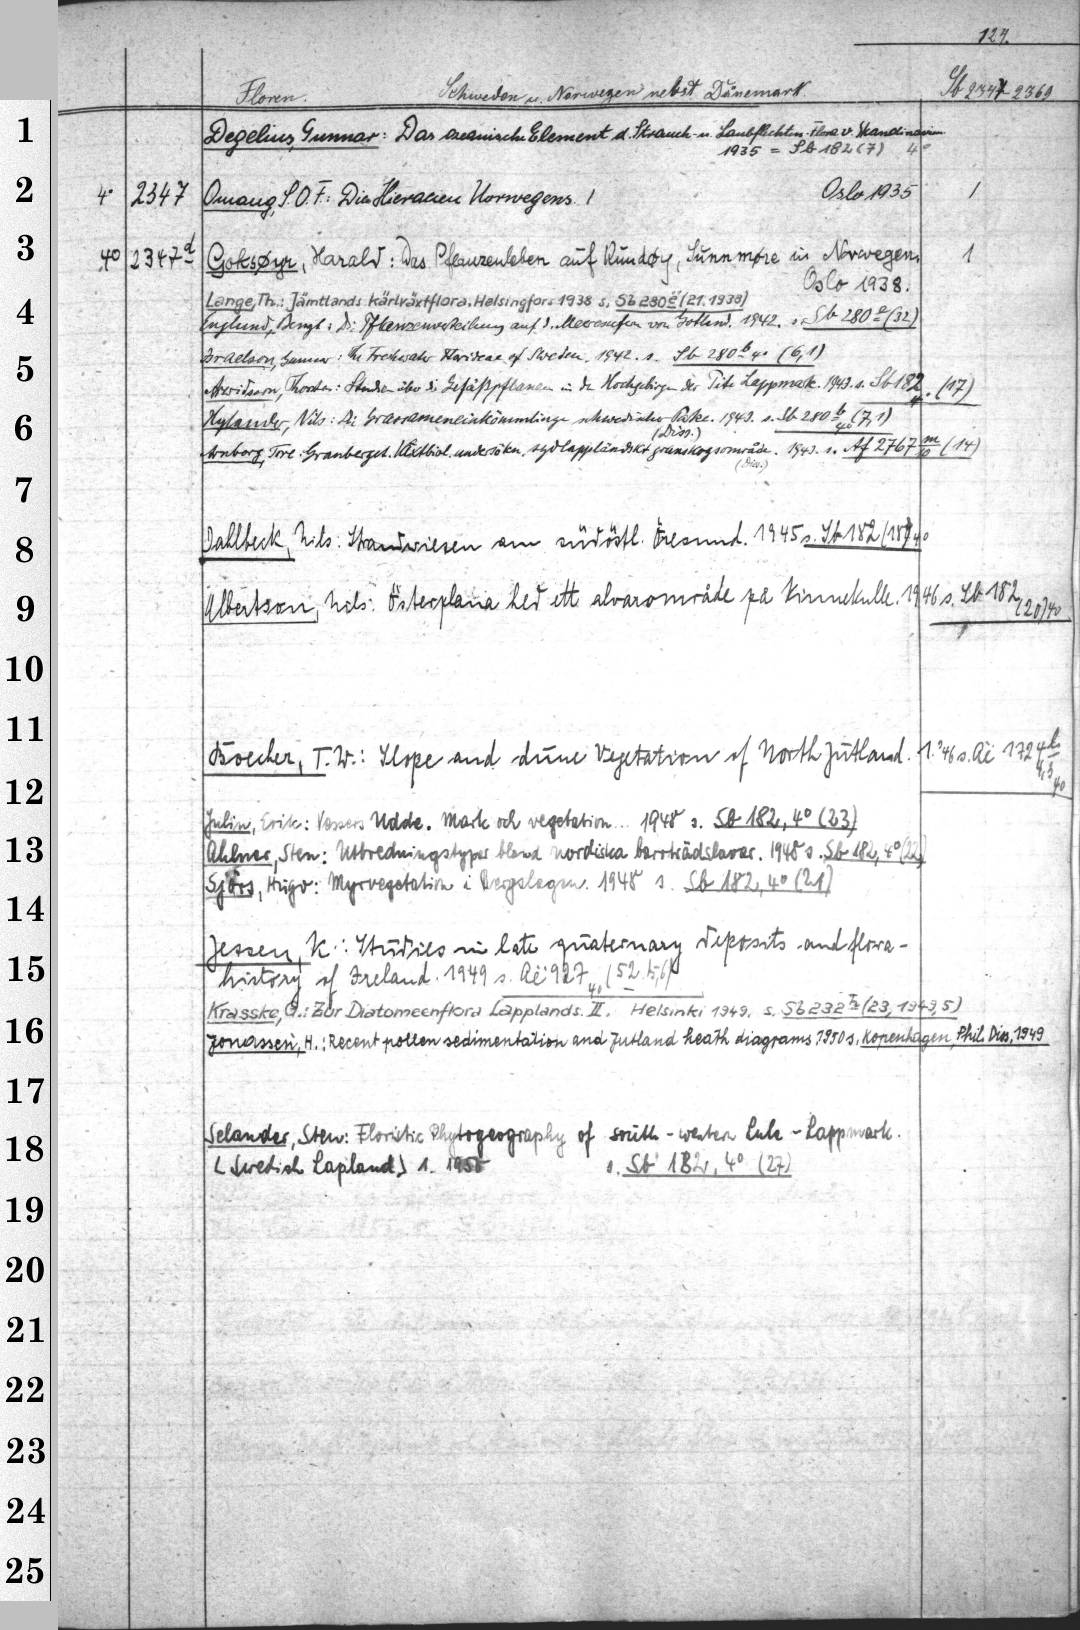 124.
Floren. Schweden u. Norwegen nebst Dänemark. Sb 2347-2369
1 Degelius, Gunnar: Das ozeanische Element d. Strauch- u. Laubflechten-Flora v. Skandinavien
1935 = Sb 182 (7) 4°
2 4° 2347 Omang, S.O.F: Die Hieracien Norwegens. 1 Oslo 1935 1
3 4° 2347d Goksøyr, Harald: Das Pflanzenleben auf Rundøy, Sunnmøre in Norwegen. 1
Oslo 1938.
4 Lange, Th.: Jämtlands kärlväxtflora. Helsingfors 1938 s. Sb 280 (21. 1938)
Englund, Bengt: Die Pflanzenverteilung auf d. Meeresufern von Gotland. 1942. s. Sb 280 (32)
5 Israelson, Gunnar: The Freshwater Florideae of Sweden. 1942. s. Sb 280 b 4° (6,1)
Arwidsson, Thorsten: Studien über die Gefäßpflanzen in den Hochgebirgen der Pite Lappmark. 1943. s. Sb 182 4°. (17)
6 Hylander, Nils: Die Grassameneinkömmlinge schwedischer Parke. 1943. s. Sb 280 b 4° (7,1)
(Diss.)
Arnborg, Tore: Granberget. Växtbiol. undersökn. sydlappländskt granskogsområde. 1943. s. Af 2767 m (14)
(Diss.)
7
8 Dahlbeck, Nils: Strandwiesen am südöstl. Öresund. 1945 s. Sb 182 (18) 4°
9 Albertson, Nils: Österplana hed ett alvarområde på Kinnekulle. 1946 s. Sb 182 (20) 4°
10
11
Boecher, T.W.: Slope and dune Vegetation of North Jutland. 1. '46 s. Aë 1724 b 4,3 4°
12
Julin, Erik: Vessers Udde. Mark och vegetation... 1948 s. Sb 182, 4° (23)
13 Ahlner, Sten: Utbredningstyper bland nordiska barrträdslavar. 1948 s. Sb 182, 4° (22)
Sjörs, Hugo: Myrvegetation i Bergslagen. 1948 s. Sb 182, 4° (21)
14
Jessen, K.: Studies in late quaternary deposits and flora-
15 history of Ireland. 1949 s. Aë 927 4° (52. b, 6)
Krasske, G.: Zur Diatomeenflora Lapplands. II. Helsinki 1949. s. Sb 232 (23, 1949, 5)
16 Jonassen, H.: Recent pollen sedimentation and Jutland heath diagrams 1950 s. Kopenhagen, Phil. Diss. 1949
17
Selander, Sten: Floristic Phytogeography of south-western Lule-Lappmark.
18 (Swedish Lapland) 1. 1950 s. Sb 182, 4° (27)
19
20
21
22
23
24
25